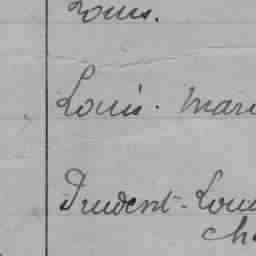 Louis.
Louis. Mari
Prudent-Loui
Ch